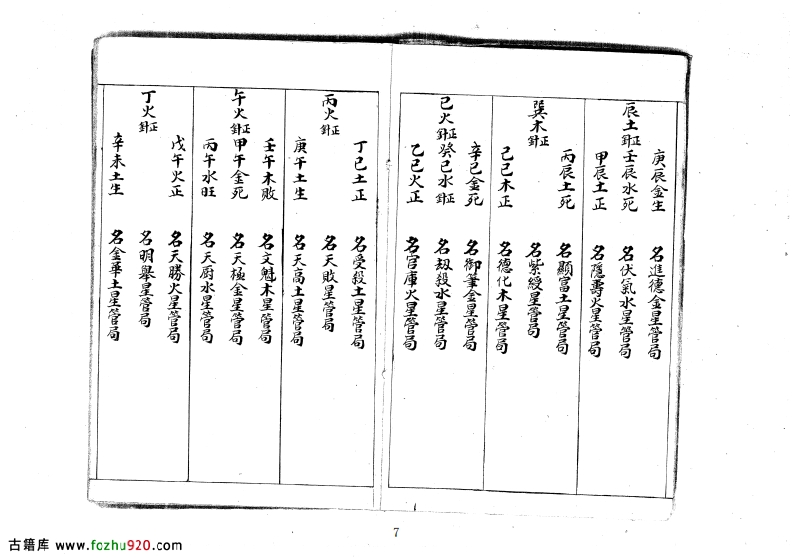 庚辰金生　名進德金星管局
辰土正針壬辰水死　名伏氣水星管局
甲辰土正　名隱壽火星管局
丙辰土死　名顯富土星管局
巽木正針　名紫綬星管局
己巳木正　名德化木星管局
辛巳金死　名御筆金星管局
巳火正針癸巳水正針　名刼殺水星管局
乙巳火正　名官庫火星管局
丁巳土正　名受殺土星管局
丙火正針　名天敗星管局
庚午土生　名天高土星管局
壬午木敗　名文魁木星管局
午火正針甲午金死　名天極金星管局
丙午水旺　名天厨水星管局
戊午火正　名天勝火星管局
丁火正針　名明舉星管局
辛未土生　名金華土星管局
7
古籍库 www.fozhu920.com